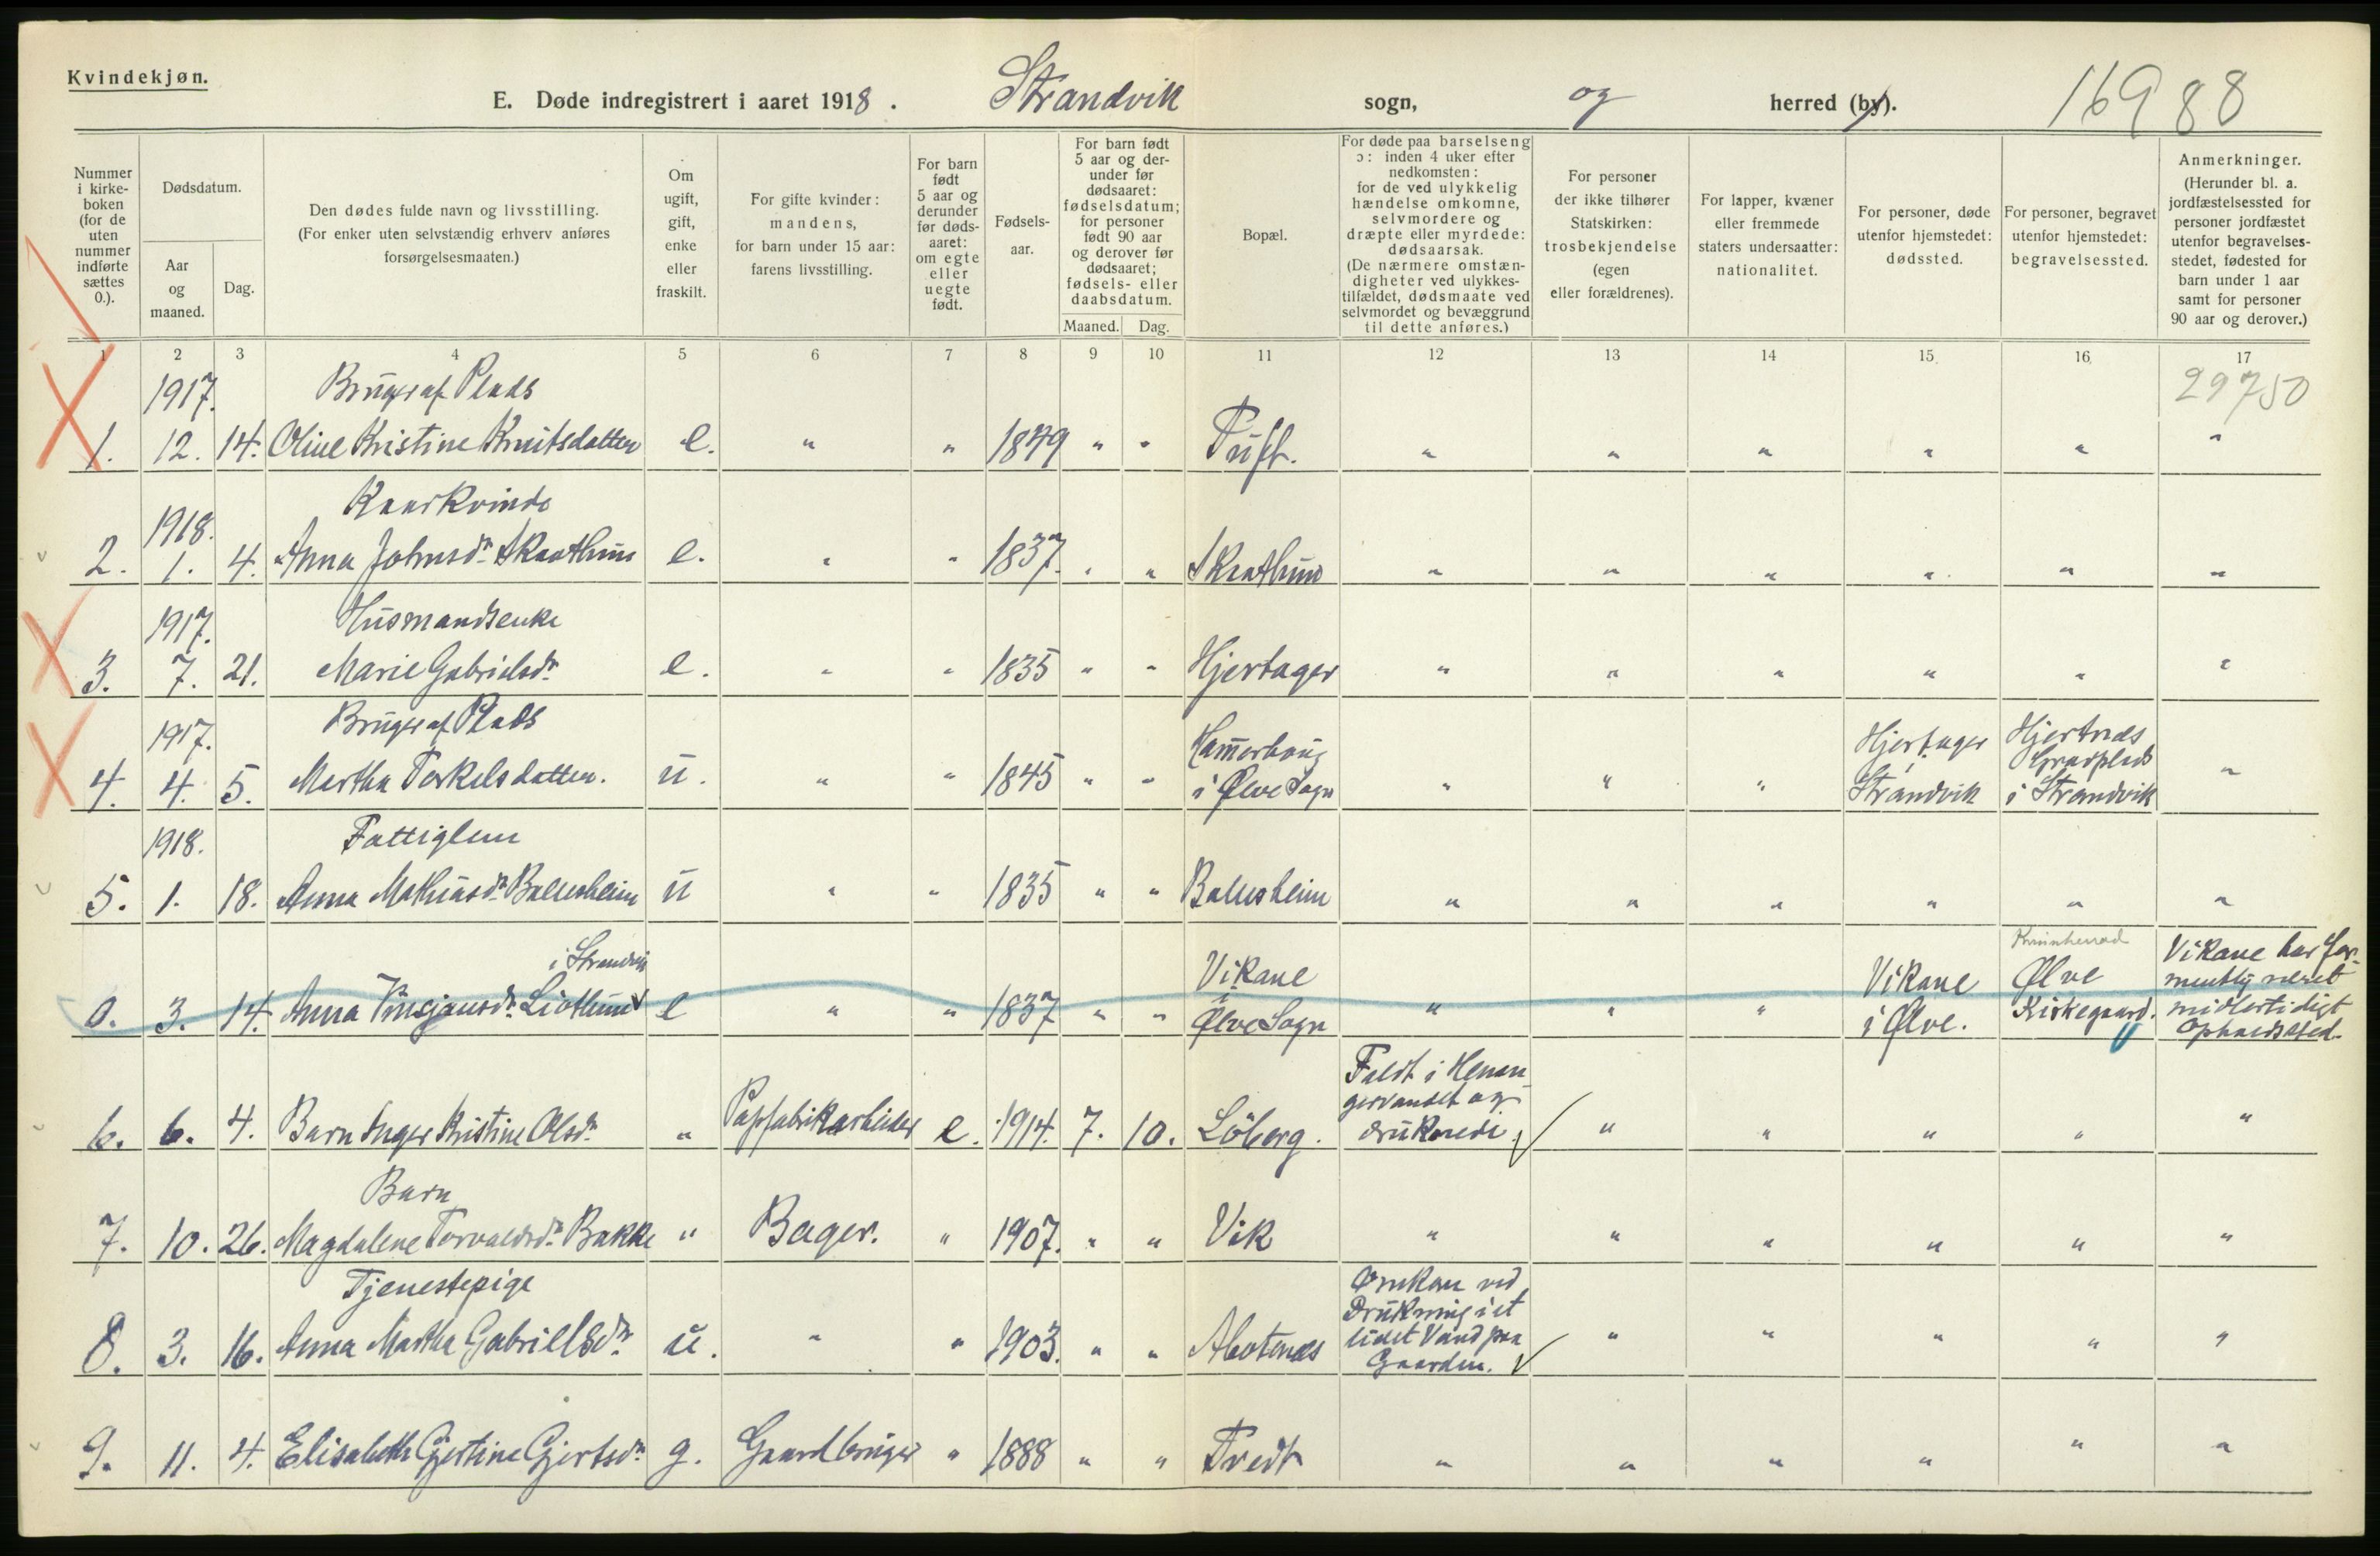 Kvindekjøn.
E. Døde indregistrert i aaret 1918. Strandvik sogn, og herred (by). 16988
Nummer i kirkeboken (for de uten nummer indførte sættes 0.).
Dødsdatum.
Aar og maaned.
Dag.
Den dødes fulde navn og livsstilling. (For enker uten selvstændig erhverv anføres forsørgelsesmaaten.)
Om ugift, gift, enke eller fraskilt.
For gifte kvinder: mandens, for barn under 15 aar: farens livsstilling.
For barn født 5 aar og derunder før dødsaaret: om egte eller uegte født.
Fødselsaar.
For barn født 5 aar og derunder før dødsaaret: fødselsdatum; for personer født 90 aar og derover før dødsaaret; fødsels- eller daabsdatum.
Maaned. Dag.
Bopæl.
For døde paa barselseng ɔ: inden 4 uker efter nedkomsten: for de ved ulykkelig hændelse omkomne, selvmordere og dræpte eller myrdede: dødsaarsak. (De nærmere omstændigheter ved ulykkestilfældet, dødsmaate ved selvmordet og bevæggrund til dette anføres.)
For personer der ikke tilhører Statskirken: trosbekjendelse (egen eller forældrenes).
For lapper, kvæner eller fremmede staters undersaatter: nationalitet.
For personer, døde utenfor hjemstedet: dødssted.
For personer, begravet utenfor hjemstedet: begravelsessted.
Anmerkninger. (Herunder bl. a. jordfæstelsessted for personer jordfæstet utenfor begravelsesstedet, fødested for barn under 1 aar samt for personer 90 aar og derover.)
1 2 3 4 5 6 7 8 9 10 11 12 13 14 15 16 17
1917. Bruger af Plads 29750
1. 12. 14. Oline Kristine Knutsdatter e. " " 1849 " " Tuft. " " " " " "
1918. Kaarkvinde
2. 1. 4. Anna Johnsdr Skaathun e. " " 1837. " " Skaathun " " " " " "
1917. Husmandsenke
3. 7. 21. Marie Gabrielsdr e. " " 1835 " " Hjertager " " " " " "
1917. Bruger af Plads Hamerhaug Hjertager Hjertnæs Gravplads
4. 4. 5. Martha Torkelsdatter. u. " " 1845 " " i Ølve Sogn " " " Strandvik i Strandvik "
1918. Fattiglem
5. 1. 18. Anna Mathiasdr Ballesheim u " " 1835 " " Ballesheim " " " " " "
i Strandvik Vikane Vikane Kvinnherred Ølve Vikane har formentlig været
0. 3. 14. Anna Liothun e " " 1837 " " i Ølve Sogn " " " i Ølve. Kirkegaard. midlertidigt Opholdssted.
Faldt i Henangervandet og
6. 6. 4. Barn Inger Kristine Olsdr " Papfabrikarbeider e. 1914. 7. 10. Löberg. druknede. " " " " "
Barn
7. 10. 26. Magdalene Torvaldsdr Bakke " Bager. " 1907. " " Vik " " " " " "
Tjenestepige Omkom ved Drukning i et
8. 3. 16. Anna Martha Gabrielsdr u. " " 1903. " " Abotnæs lidet Vand paa Gaarden. " " " " "
9. 11. 4. Elisabeth Gjertine Gjertsdr g. Gaardbruger " 1888 " " Tvedt " " " " " "